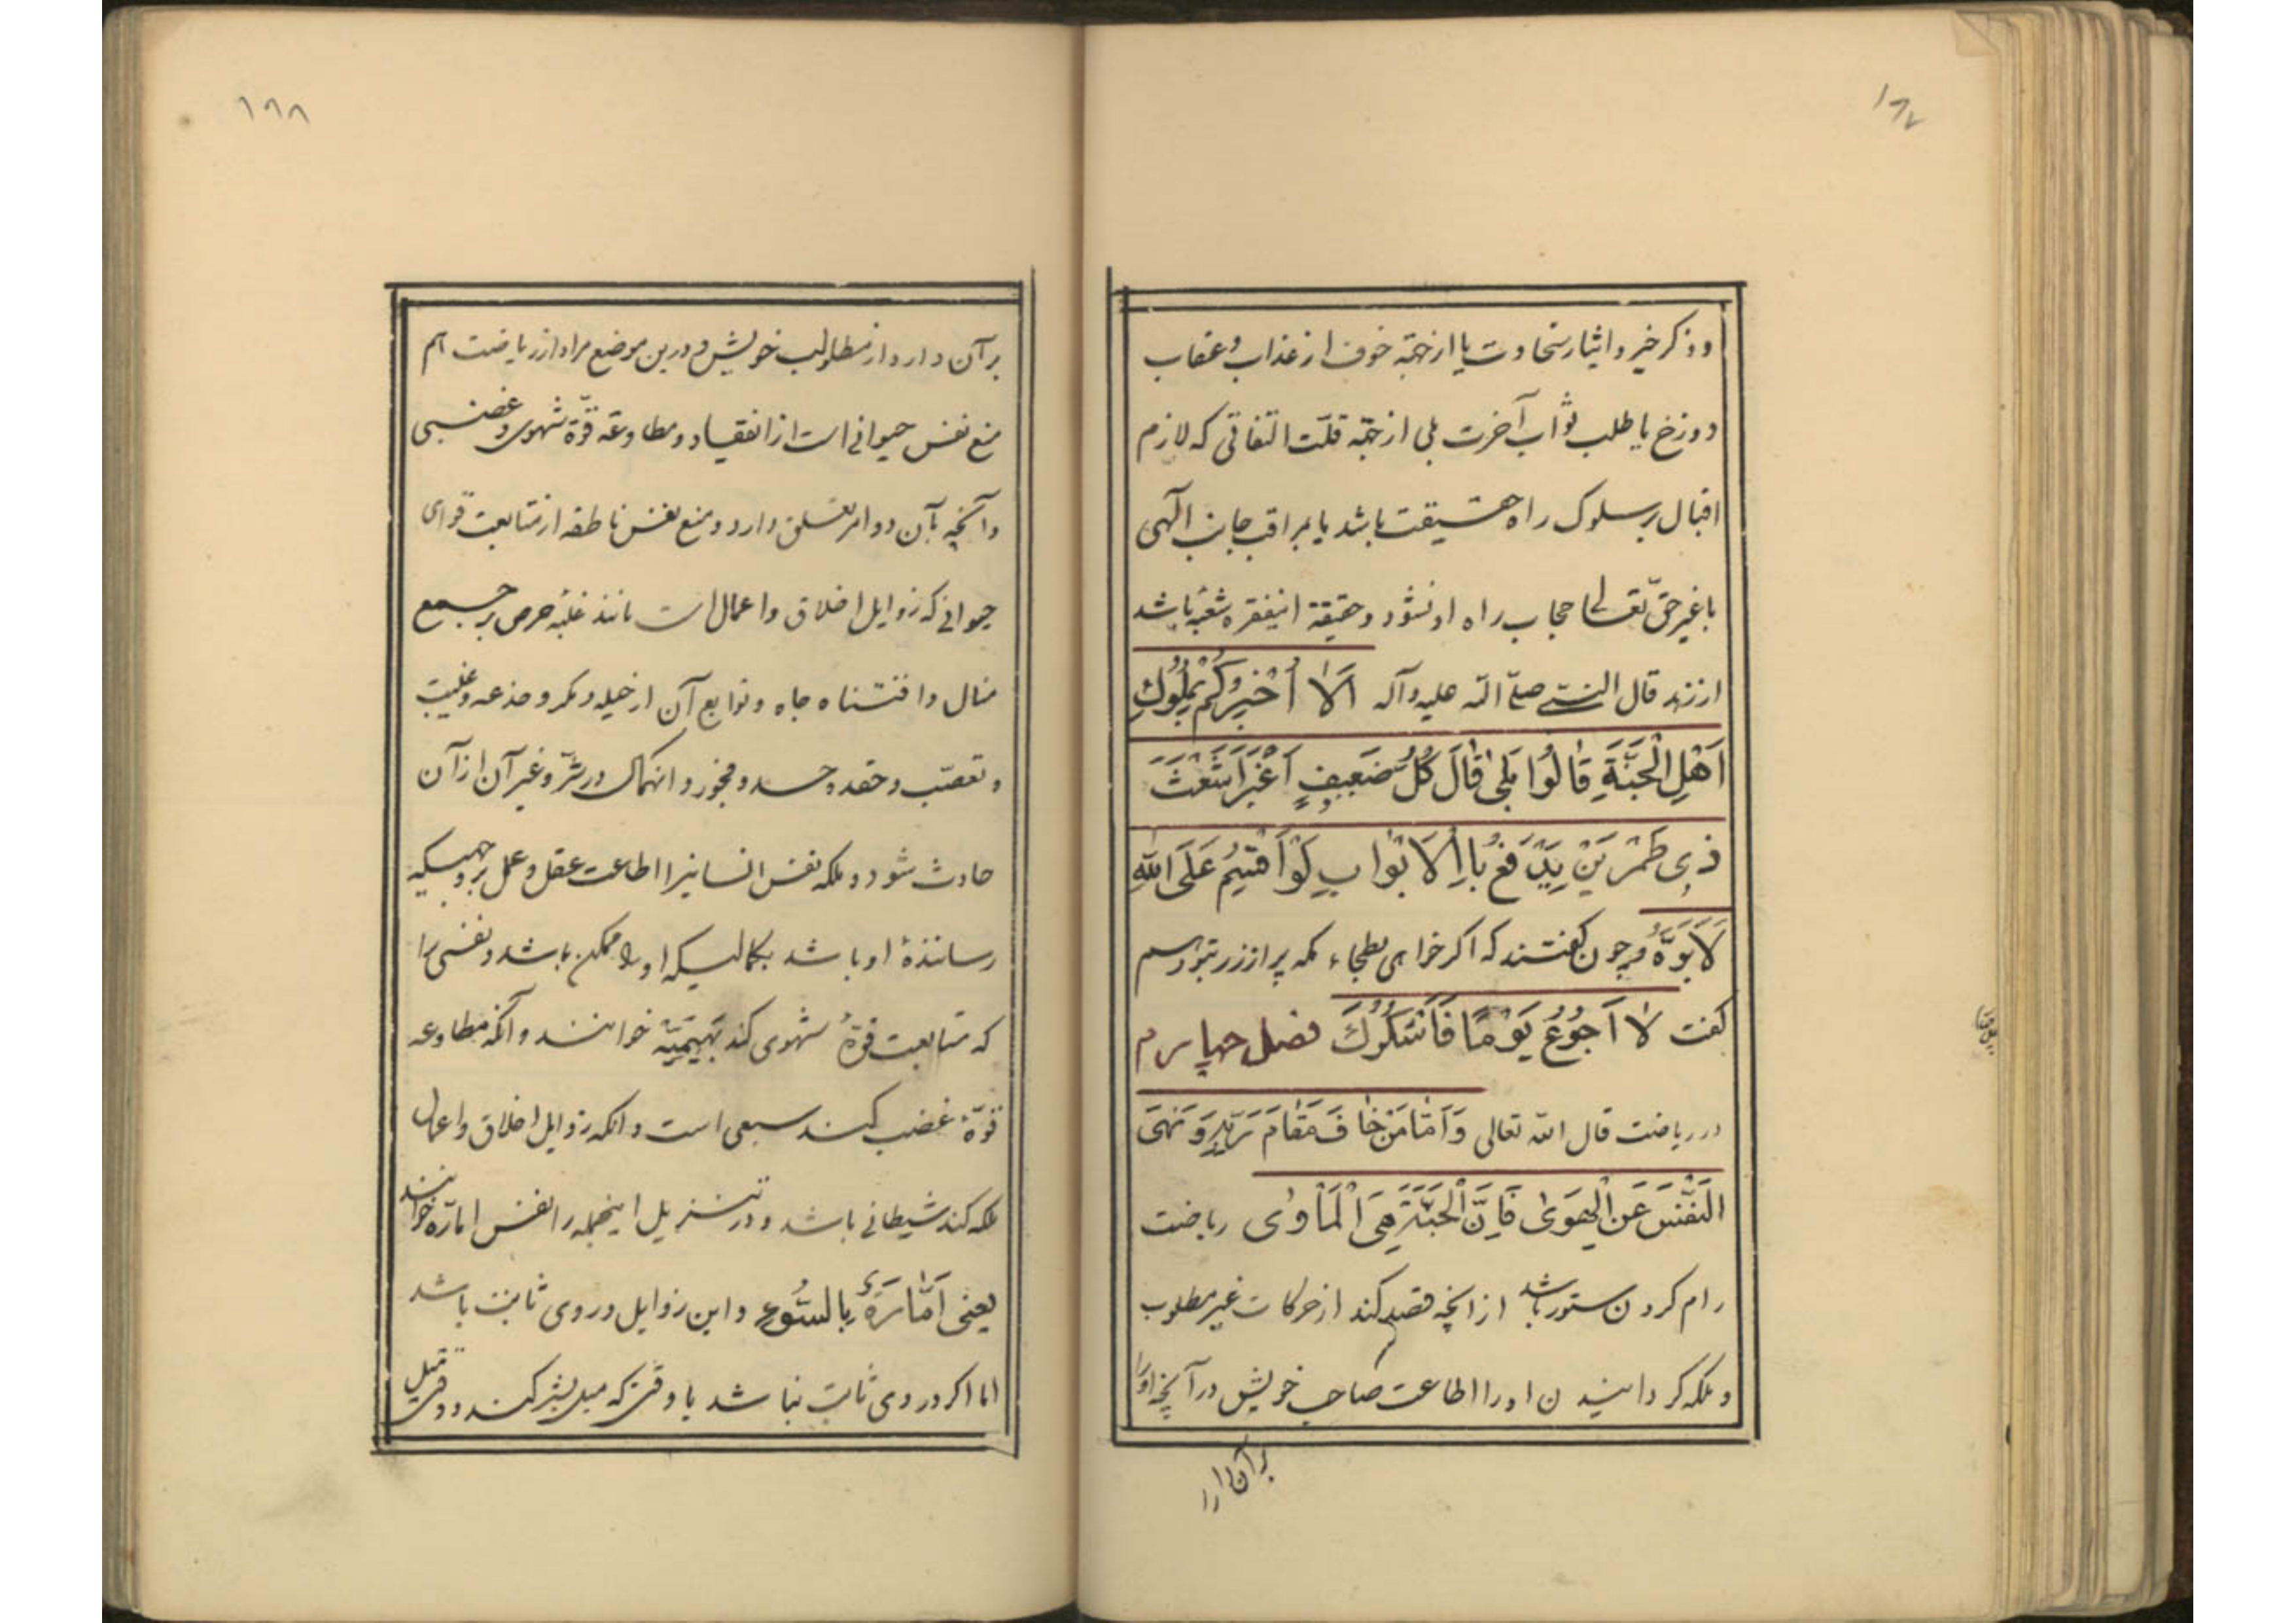 ۱۸۷
و ذکر خیر و ایثار سخاوت یا از جهة خوف از عذاب و عقاب
دوزخ یا طلب ثواب آخرت بلی از جهة قلّت التفاتی که لازم
اقبال بر سلوک راه حقیقت باشد یا مراقب جانب الهی
با غیر حقّ تعالی حجاب راه او نشود و حقیقة اینفقره شعبه باشد
از زهد قال النبی صلّی الله علیه و آله اَلا اُخْبِرُکُمْ بِمُلُوكِ
اَهْلِ الْجَنَّةِ قالُوا بَلیٰ قالَ کُلُّ ضَعیفٍ اَغْبَرَ اَشْعَثَ
ذی طَمْرَیْنِ یُدْفَعُ بِالاَبْوابِ لَوْ اُقْسِمُ عَلَی اللهِ
لَاَبَرَّهُ و چون گفتند که اگر خواهی بطحاء مکه پر از زر بتو دهیم
گفت لا اَجُوعُ یَوْمًا فَاَشْکُرُكَ فصل چهارم
در ریاضت قال الله تعالی وَ اَمّا مَنْ خافَ مَقامَ رَبِّهِ وَ نَهَی
النَّفْسَ عَنِ الْهَوی فَاِنَّ الْجَنَّةَ هِیَ الْمَاْوی ریاضت
رام کردن ستور باشد از انچه قصد کند از حرکات غیر مطلوب
و ملکه کردانیدن او را اطاعت صاحب خویش در آنچه او را
بر آن دارد
۱۸۸
بر آن دارد از مطالب خویش و درین موضع مراد از ریاضت هم
منع نفس حیوانی است از انقیاد و مطاوعة قوّة شهوی و غضبی
و آنچه بآن دو امر تعلق دارد و منع نفس ناطقه از متابعت قوای
حیوانی که رذایل اخلاق و اعمال است مانند غلبه حرص بر جمع
منال و اقتناه جاه و توابع آن از حیله و مکر و خدعه و غلبت
و تعصّب و حقد و حسد و فجور و انهماک در شرّ و غیر آن از آن
حادث شود و ملکه نفس انسانیرا اطاعت عقل و عمل بر وجهیکه
رسانندهٔ او باشد بکمالیکه او را ممکن باشد و نفسی را
که متابعت قوهٔ شهوی کند بَهیمیّه خوانند و آنکه مطاوعه
قوّهٔ غضب کند سبعی است و انکه رذایل اخلاق و اعمال
ملکه کند شیطانی باشد و در تنزیل اینجمله را نفس اماره خوانند
یعنی اَمّارَةٌ بِالسُّوءِ و این رذایل در وی ثابت باشد
اما اگر در وی ثابت نباشد یا وقتی که میل بشر کند و وقتی میل